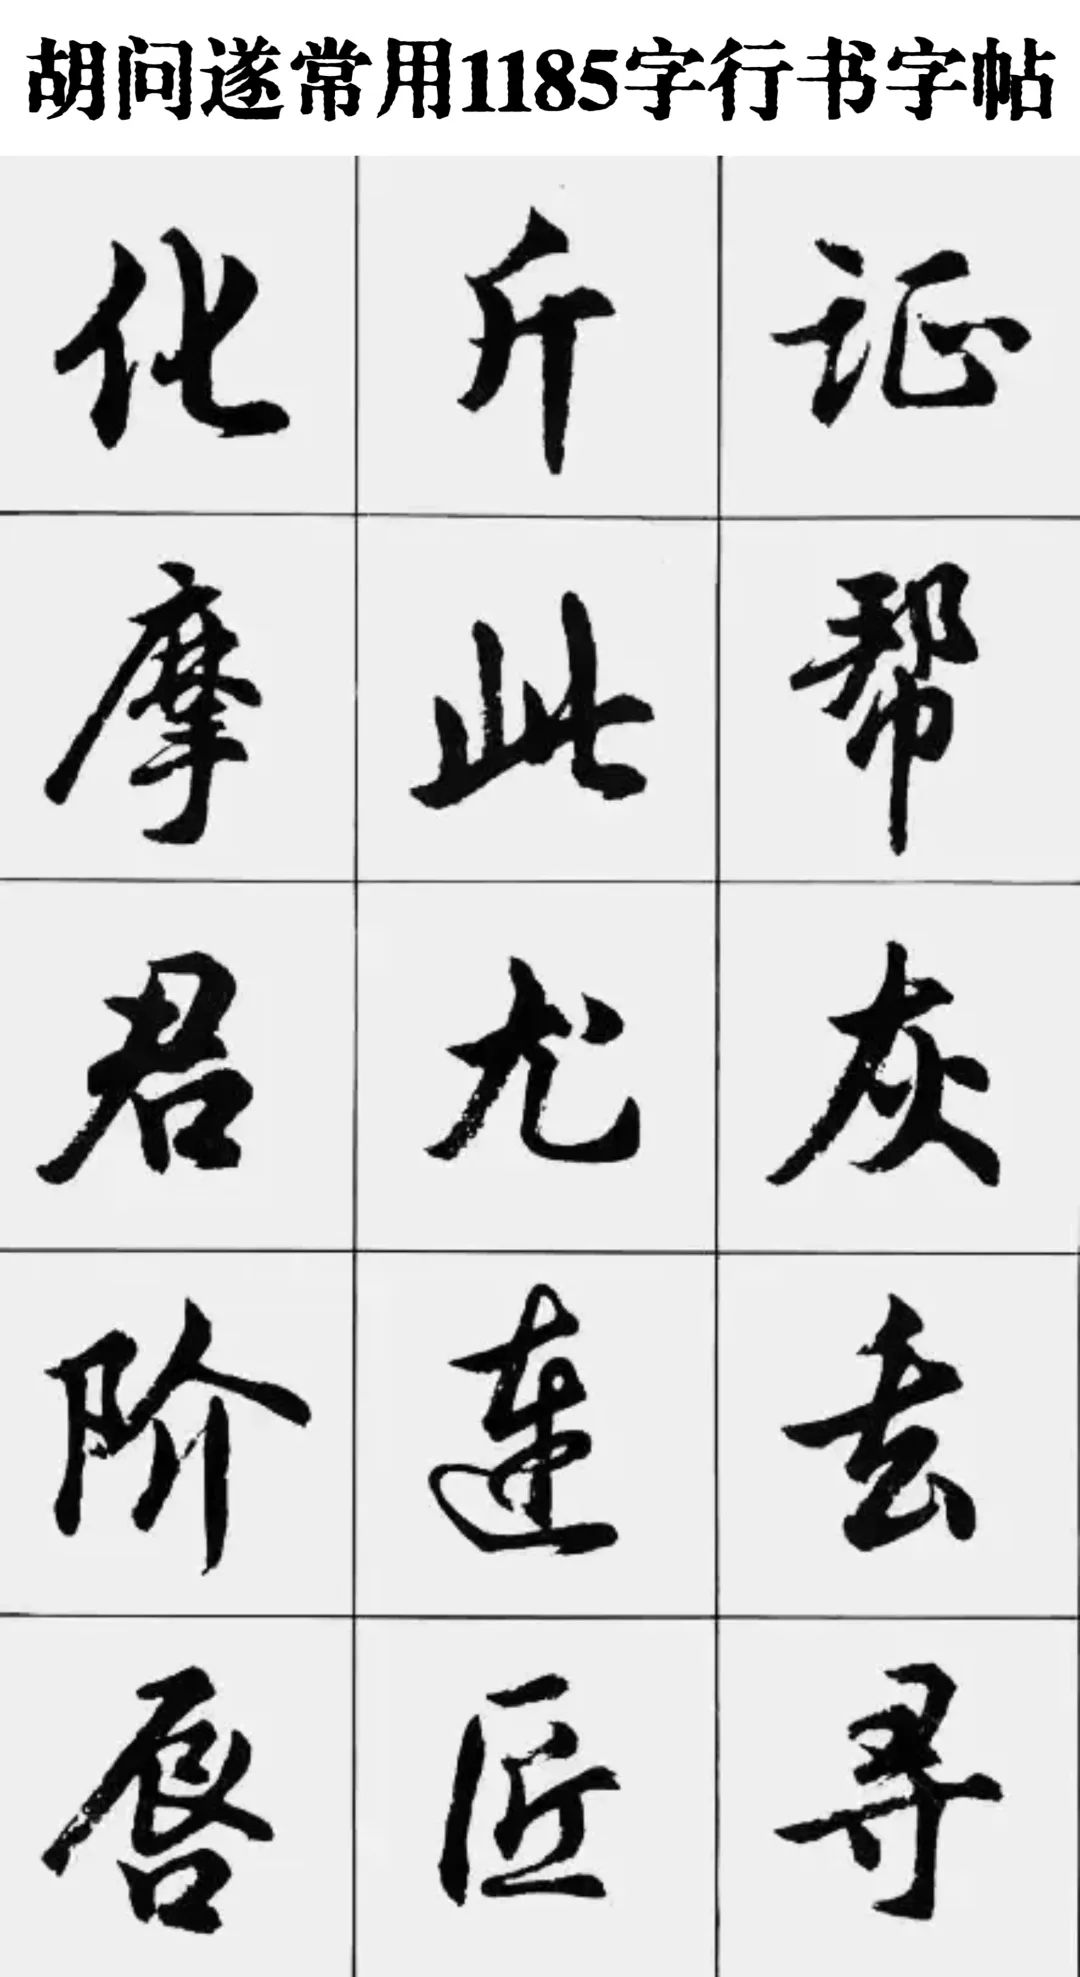 胡问遂常用1185字行书字帖
化斤证
摩此帮
君尤灰
阶连去
唇匠寻